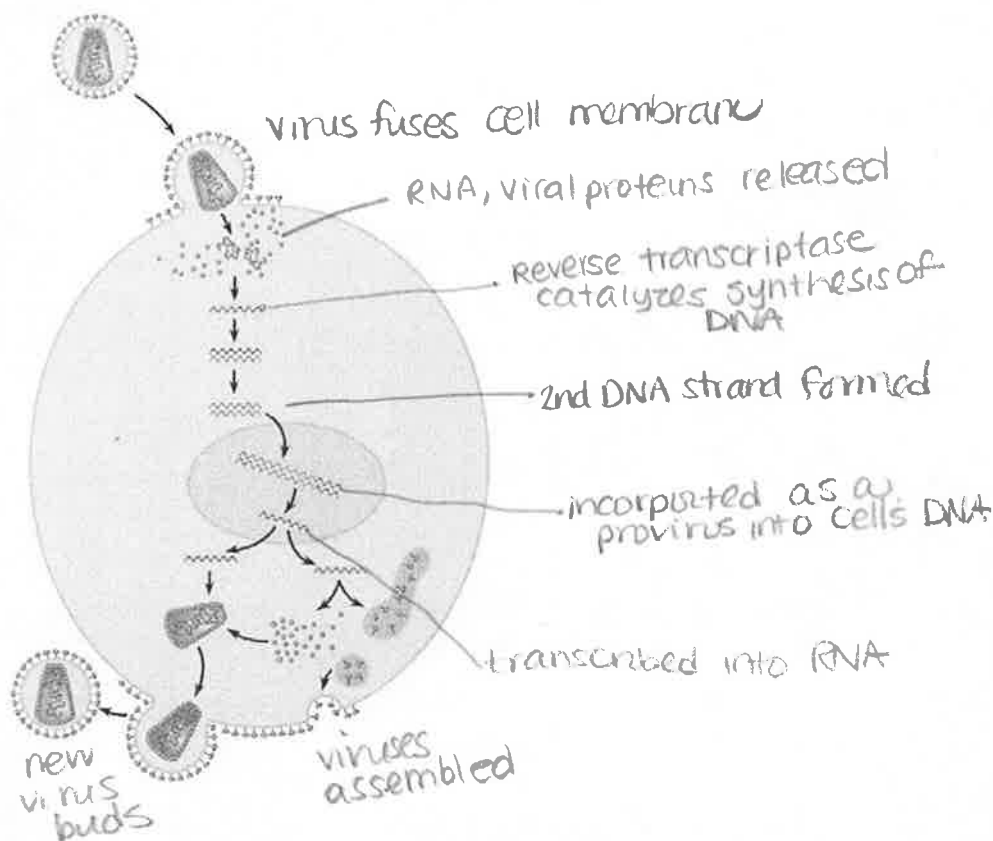 virus fuses cell membrane
RNA, viral proteins released
Reverse transcriptase
catalyzes synthesis of
DNA
2nd DNA strand formed
incorported as a
provirus into cells DNA
transcribed into RNA
viruses
assembled
new
virus
buds